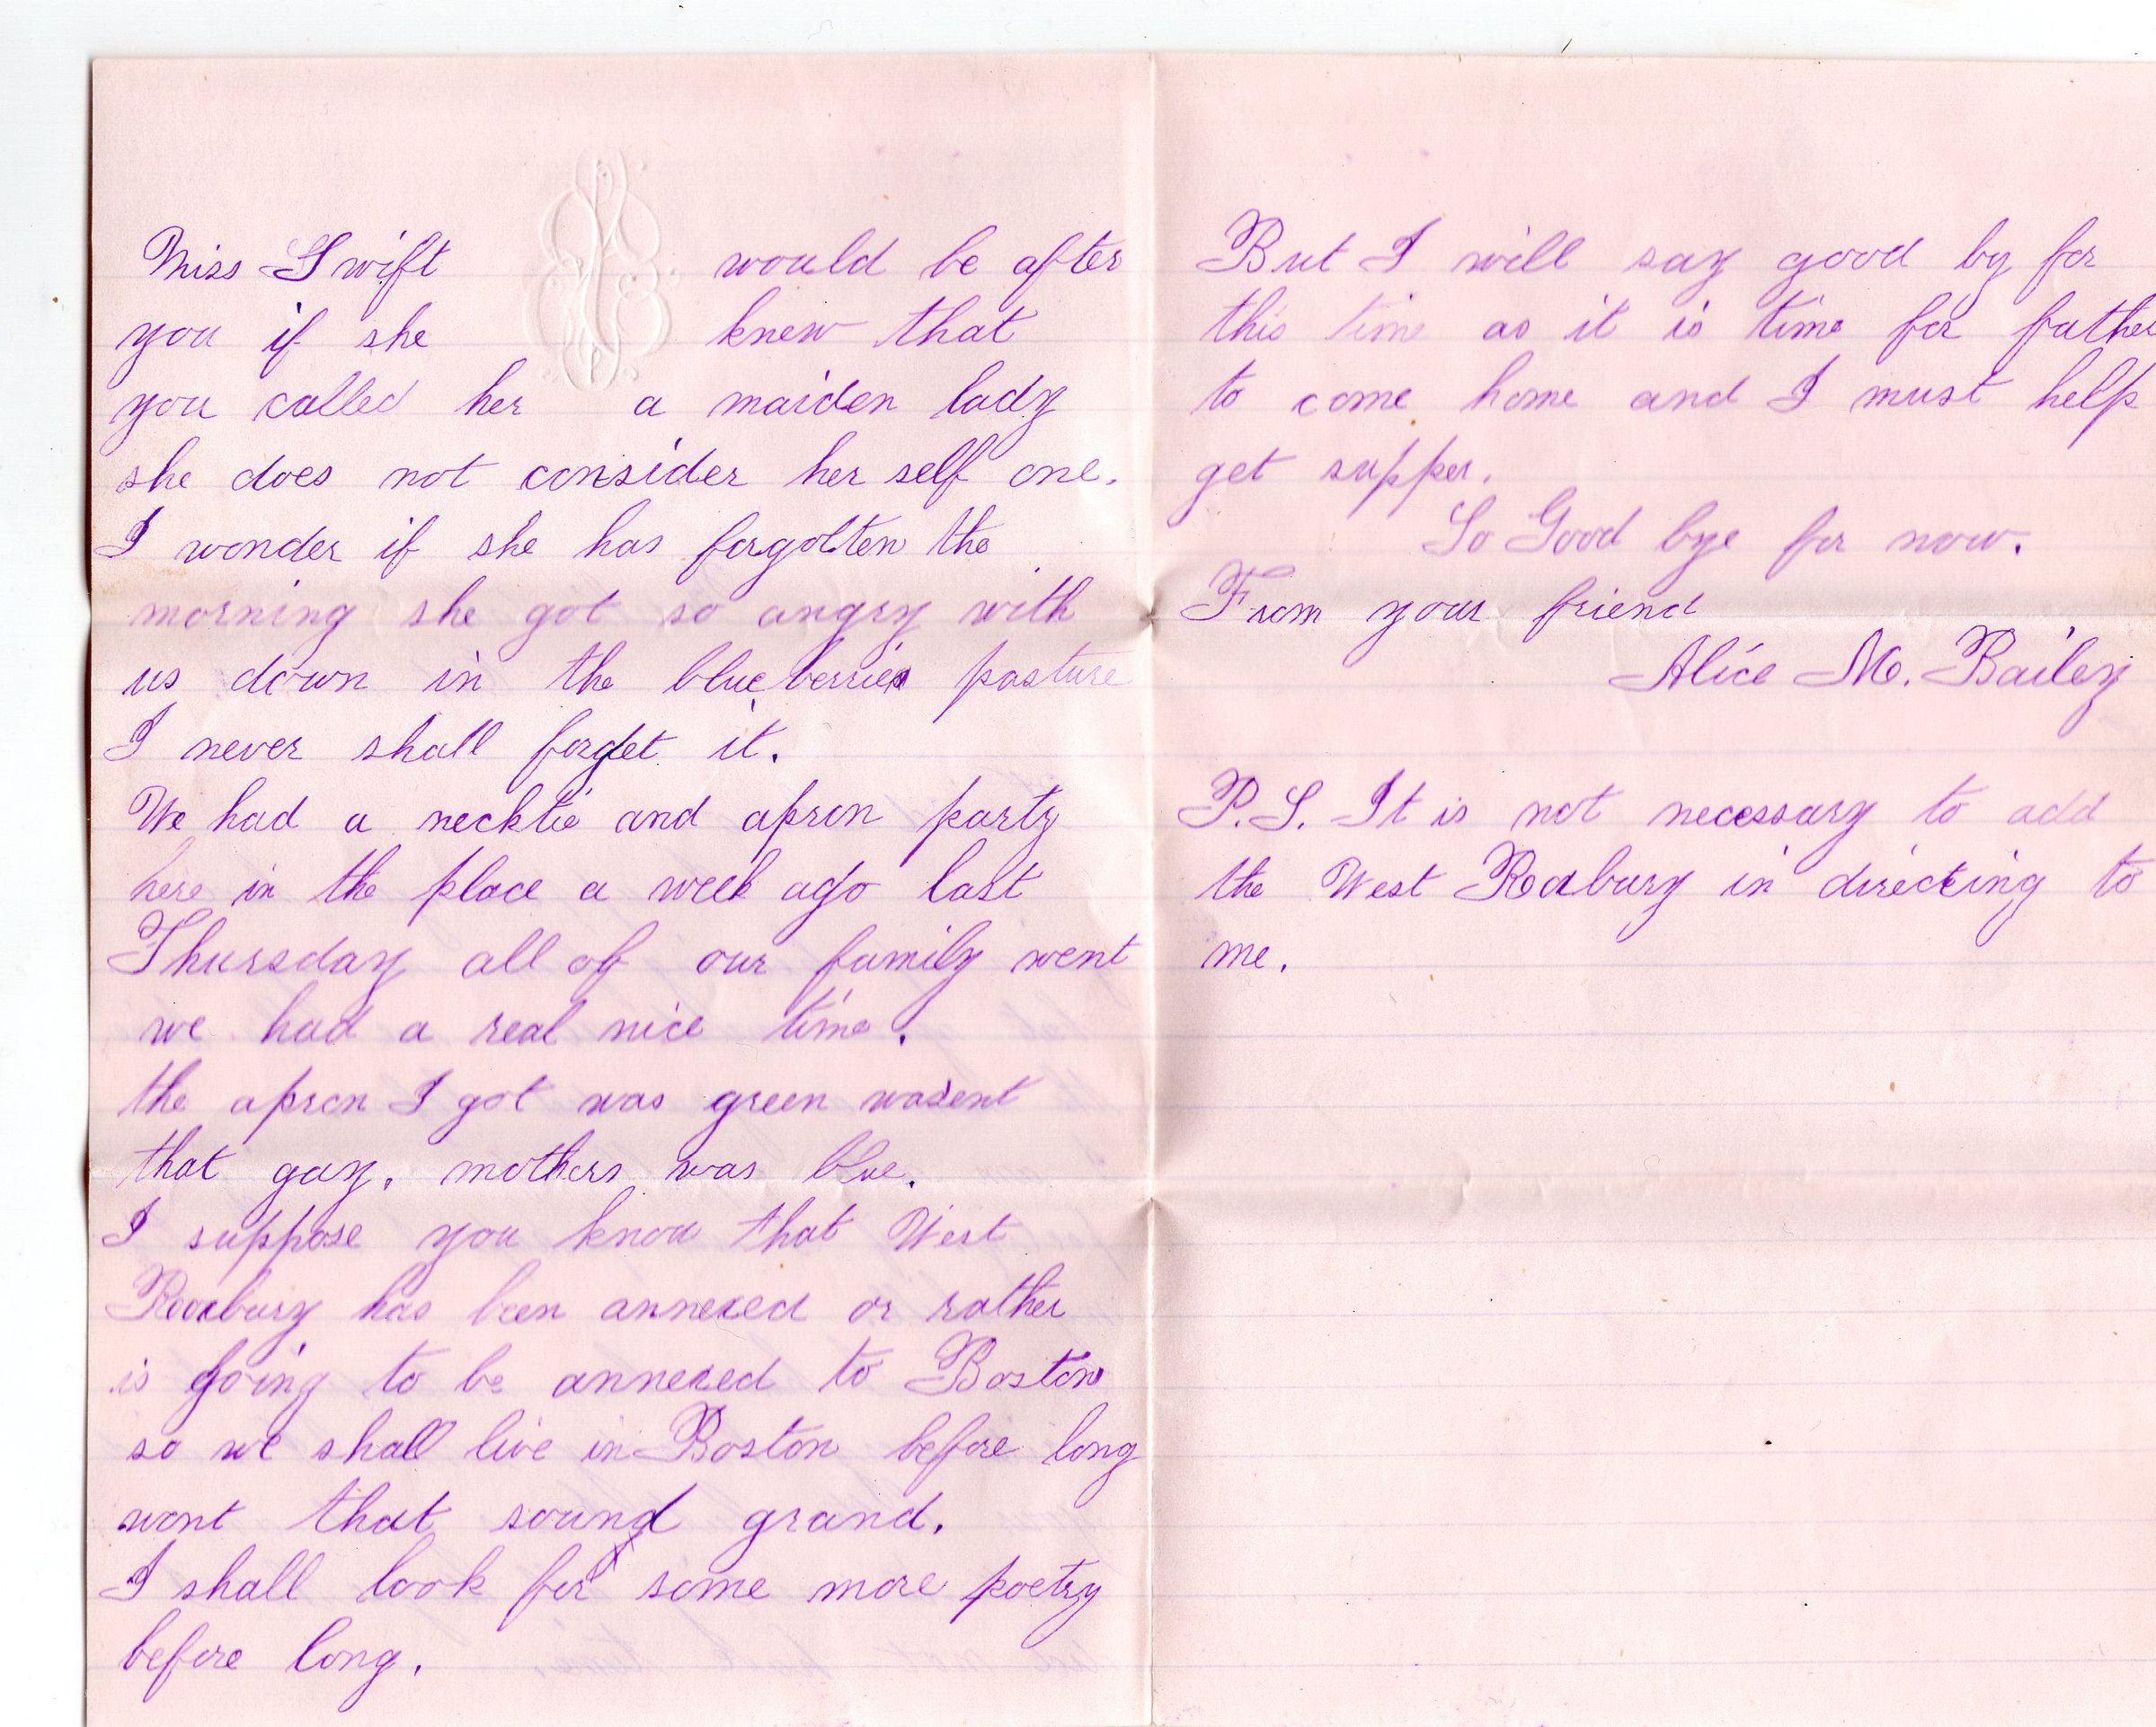 Miss Swift would be after
you if she knew that
you called her a maiden lady
she does not consider her self one.
I wonder if she has forgotten the
morning she got so angry with
us down in the blueberries pasture
I never shall forget it.
We had a necktie and apron party
here in the place a week ago last
Thursday all of our family went
we had a real nice time.
the apron I got was green wasent
that gay. mothers was blue.
I suppose you know that West
Roxbury has been annexed or rather
is going to be annexed to Boston
so we shall live in Boston before long
wont that sound grand.
I shall look for some more poetry
before long.
But I will say good by for
this time as it is time for father
to come home and I must help
get supper.
So Good bye for now.
From your friend
Alice M. Bailey
P.S. It is not necessary to add
the West Roxbury in directing to
me.